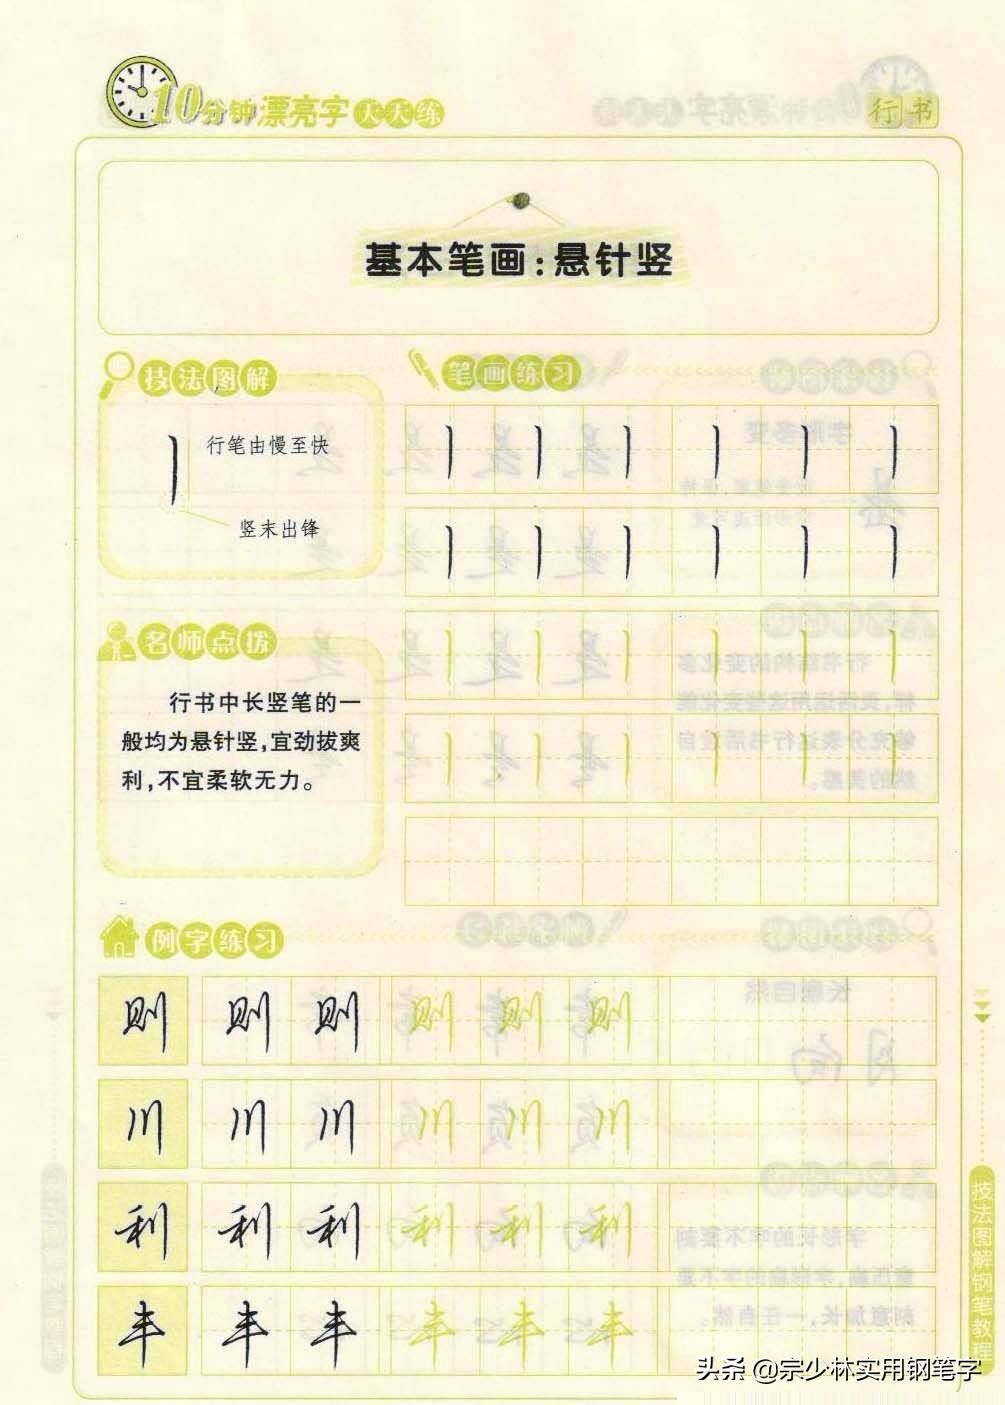 10分钟漂亮字天天练
行书
基本笔画：悬针竖
技法图解
行笔由慢至快
竖末出锋
笔画练习
名师点拨
行书中长竖笔的一
般均为悬针竖，宜劲拔爽
利，不宜柔软无力。
例字练习
则 则 则 则 则 则
川 川 川 川 川 川
利 利 利 利 利 利
丰 丰 丰 丰 丰 丰
技法图解钢笔教程
头条 @宗少林实用钢笔字